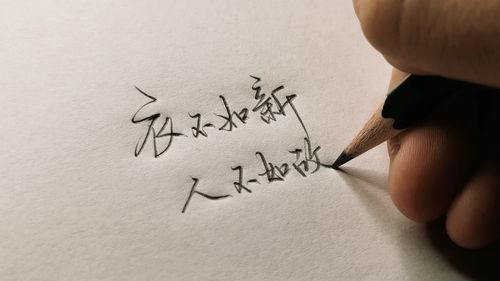 衣不如新
人不如故